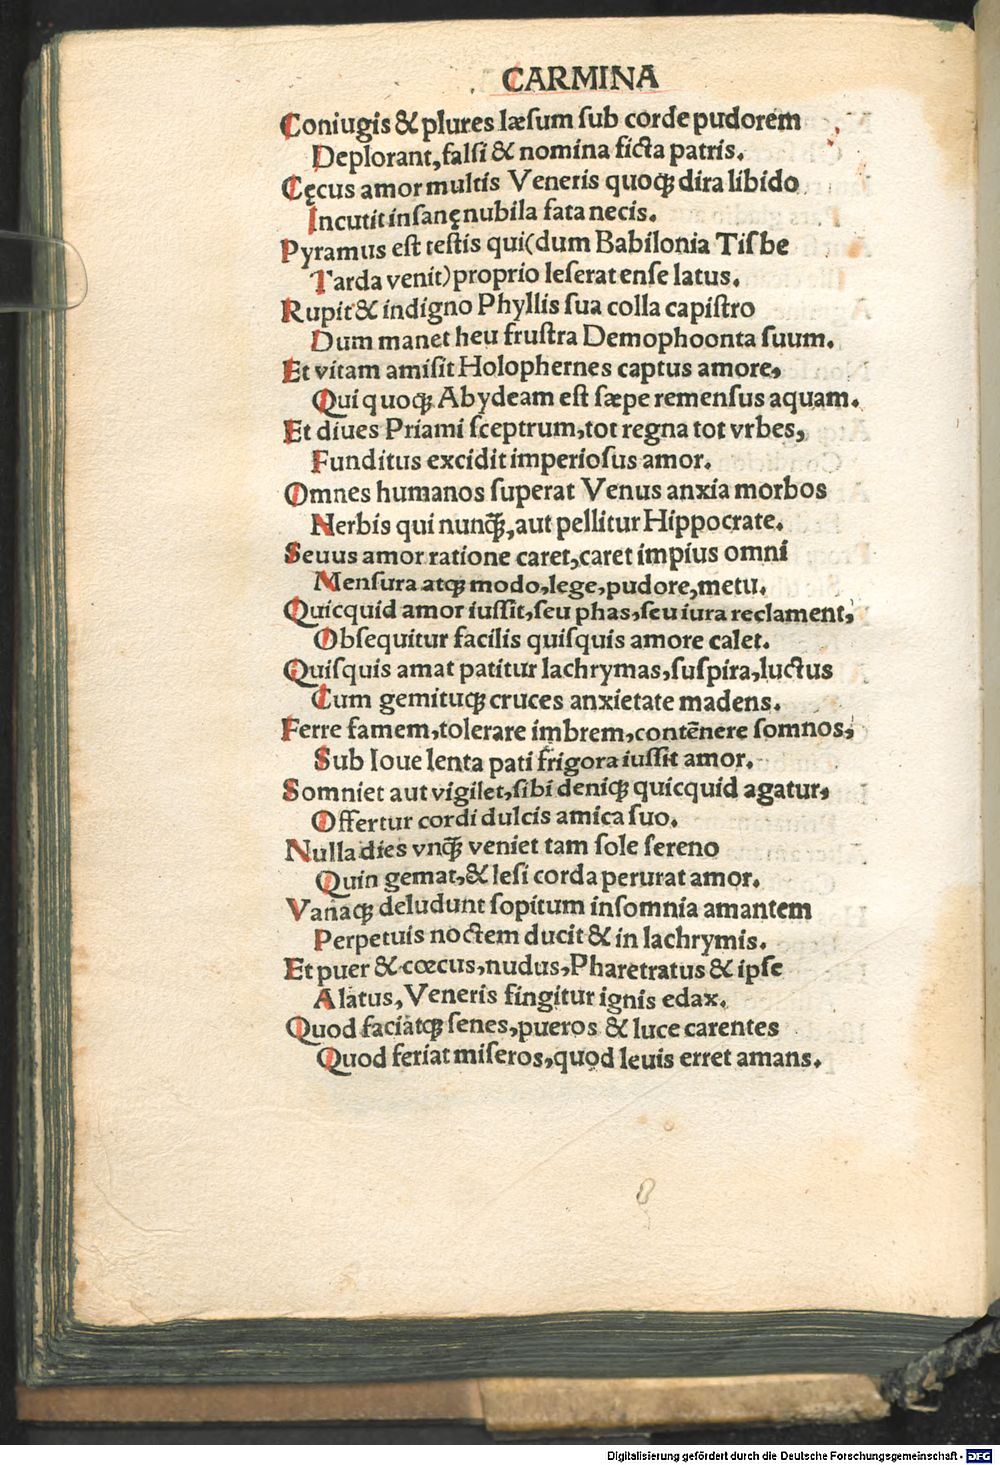 CARMINA
Coniugis & plures læsum sub corde pudorem
Deplorant, falsi & nomina ficta patris.
Cęcus amor multis Veneris quoqꝫ dira libido
Incutit insanę nubila fata necis.
Pyramus est testis qui(dum Babilonia Tisbe
Tarda venit)proprio leserat ense latus.
Rupit & indigno Phyllis sua colla capistro
Dum manet heu frustra Demophoonta suum.
Et vitam amisit Holophernes captus amore,
Qui quoqꝫ Abydeam est sæpe remensus aquam.
Et diues Priami sceptrum, tot regna tot vrbes,
Funditus excidit imperiosus amor.
Omnes humanos superat Venus anxia morbos
Nerbis qui nunqꝫ̃, aut pellitur Hippocrate.
Seuus amor ratione caret, caret impius omni
Mensura atqꝫ modo, lege, pudore, metu.
Quicquid amor iussit, seu phas, seu iura reclament,
Obsequitur facilis quisquis amore calet.
Quisquis amat patitur lachrymas, suspira, luctus
Cum gemituqꝫ cruces anxietate madens.
Ferre famem, tolerare imbrem, contēnere somnos,
Sub Ioue lenta pati frigora iussit amor.
Somniet aut vigilet, sibi deniqꝫ quicquid agatur,
Offertur cordi dulcis amica suo.
Nulla dies vnqꝫ̃ veniet tam sole sereno
Quin gemat, & lesi corda perurat amor.
Variaqꝫ deludunt sopitum insomnia amantem
Perpetuis noctem ducit & in lachrymis.
Et puer & cœcus, nudus, Pharetratus & ipse
Alatus, Veneris fingitur ignis edax.
Quod faciatqꝫ senes, pueros & luce carentes
Quod feriat miseros, quod leuis erret amans.
Digitalisierung gefördert durch die Deutsche Forschungsgemeinschaft - DFG